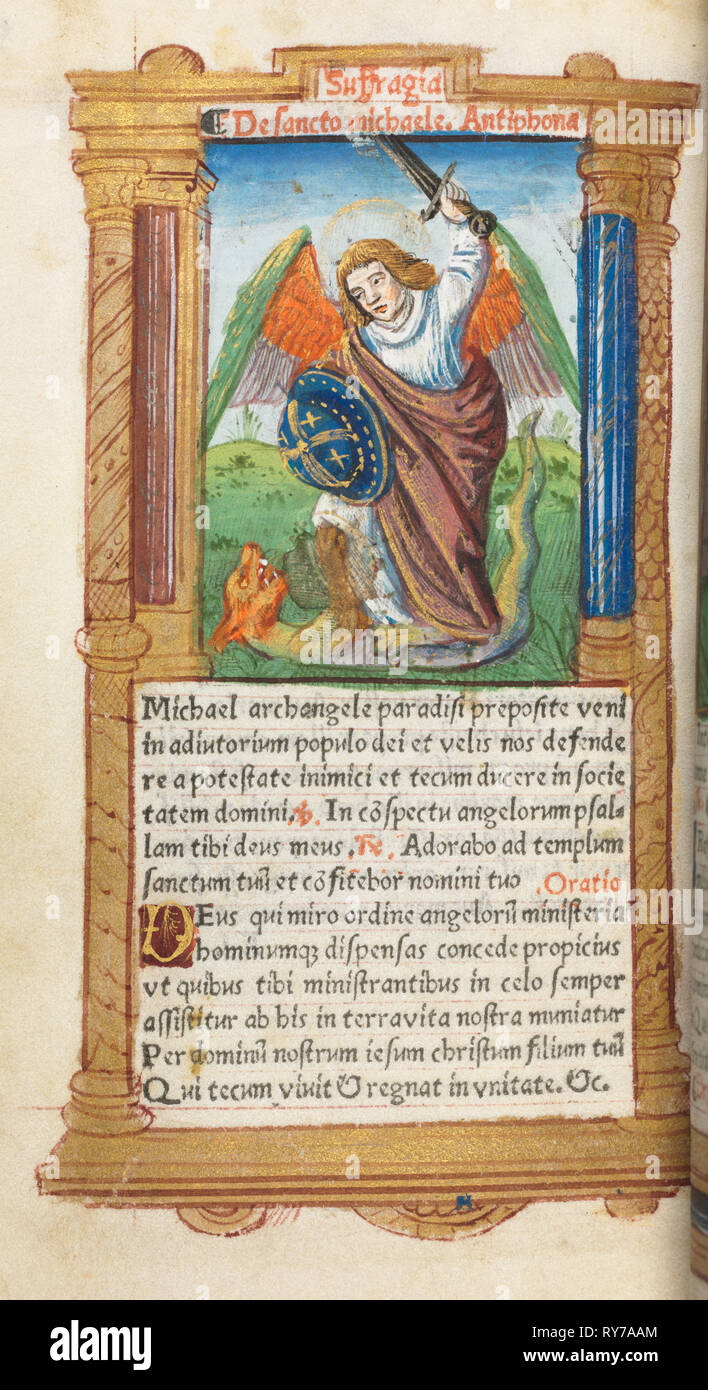 Suffragia
De sancto michaele. Antiphona
Michael archangele paradisi preposite veni
in adiutorium populo dei et velis nos defende
re a potestate inimici et tecum ducere in socie
tatem domini. ℣. In cōspectu angelorum psal-
lam tibi deus meus. ℟. Adorabo ad templum
sanctum tuū et cōfitebor nomini tuo .Oratio
DEus qui miro ordine angelorū ministeria
hominumqꝫ dispensas concede propicius
vt quibus tibi ministrantibus in celo semper
assistitur ab his in terra vita nostra muniatur
Per dominū nostrum iesum christum filium tuū
Qui tecum viuit & regnat in vnitate. &c.
alamy
Image ID: RY7AAM
www.alamy.com